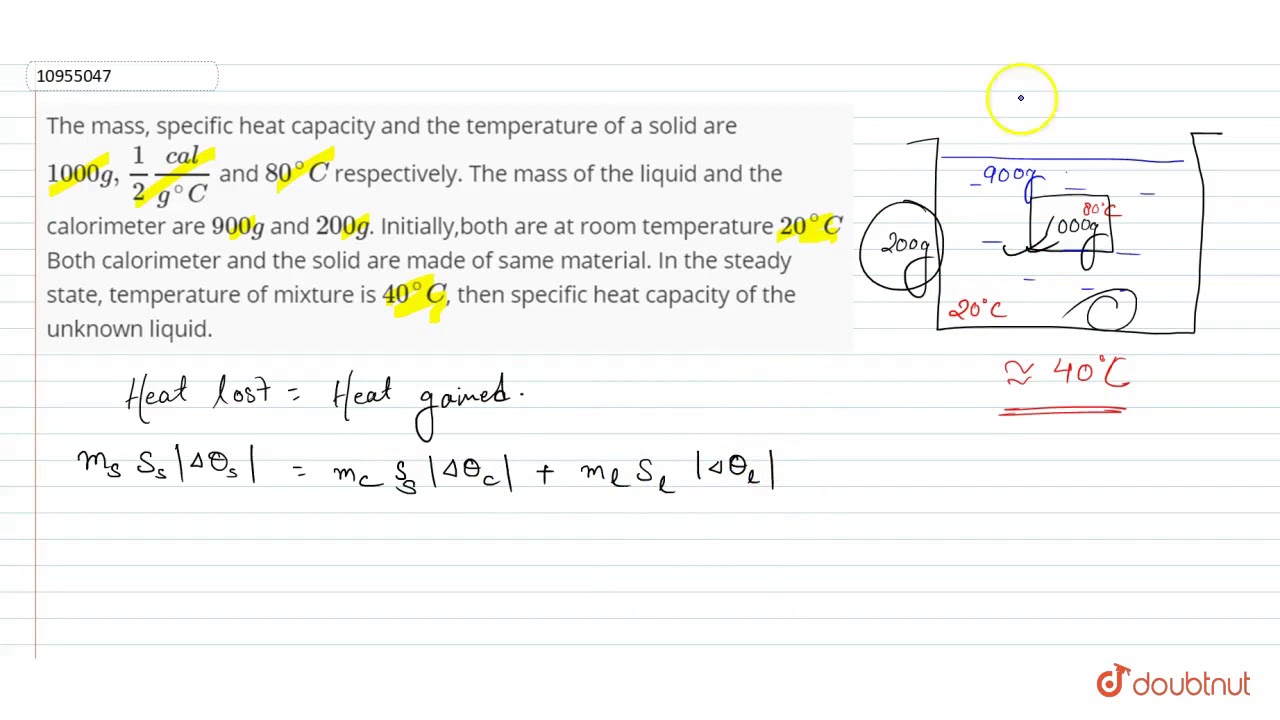 10955047
The mass, specific heat capacity and the temperature of a solid are
1000g, 1/2 cal/g°C and 80°C respectively. The mass of the liquid and the
calorimeter are 900g and 200g. Initially,both are at room temperature 20°C
Both calorimeter and the solid are made of same material. In the steady
state, temperature of mixture is 40°C, then specific heat capacity of the
unknown liquid.
900g
80°C
1000g
200g
20°C
≈ 40°C
Heat lost = Heat gained.
m_s S_s |Δθ_s| = m_c S_s |Δθ_c| + m_l S_l |Δθ_l|
doubtnut